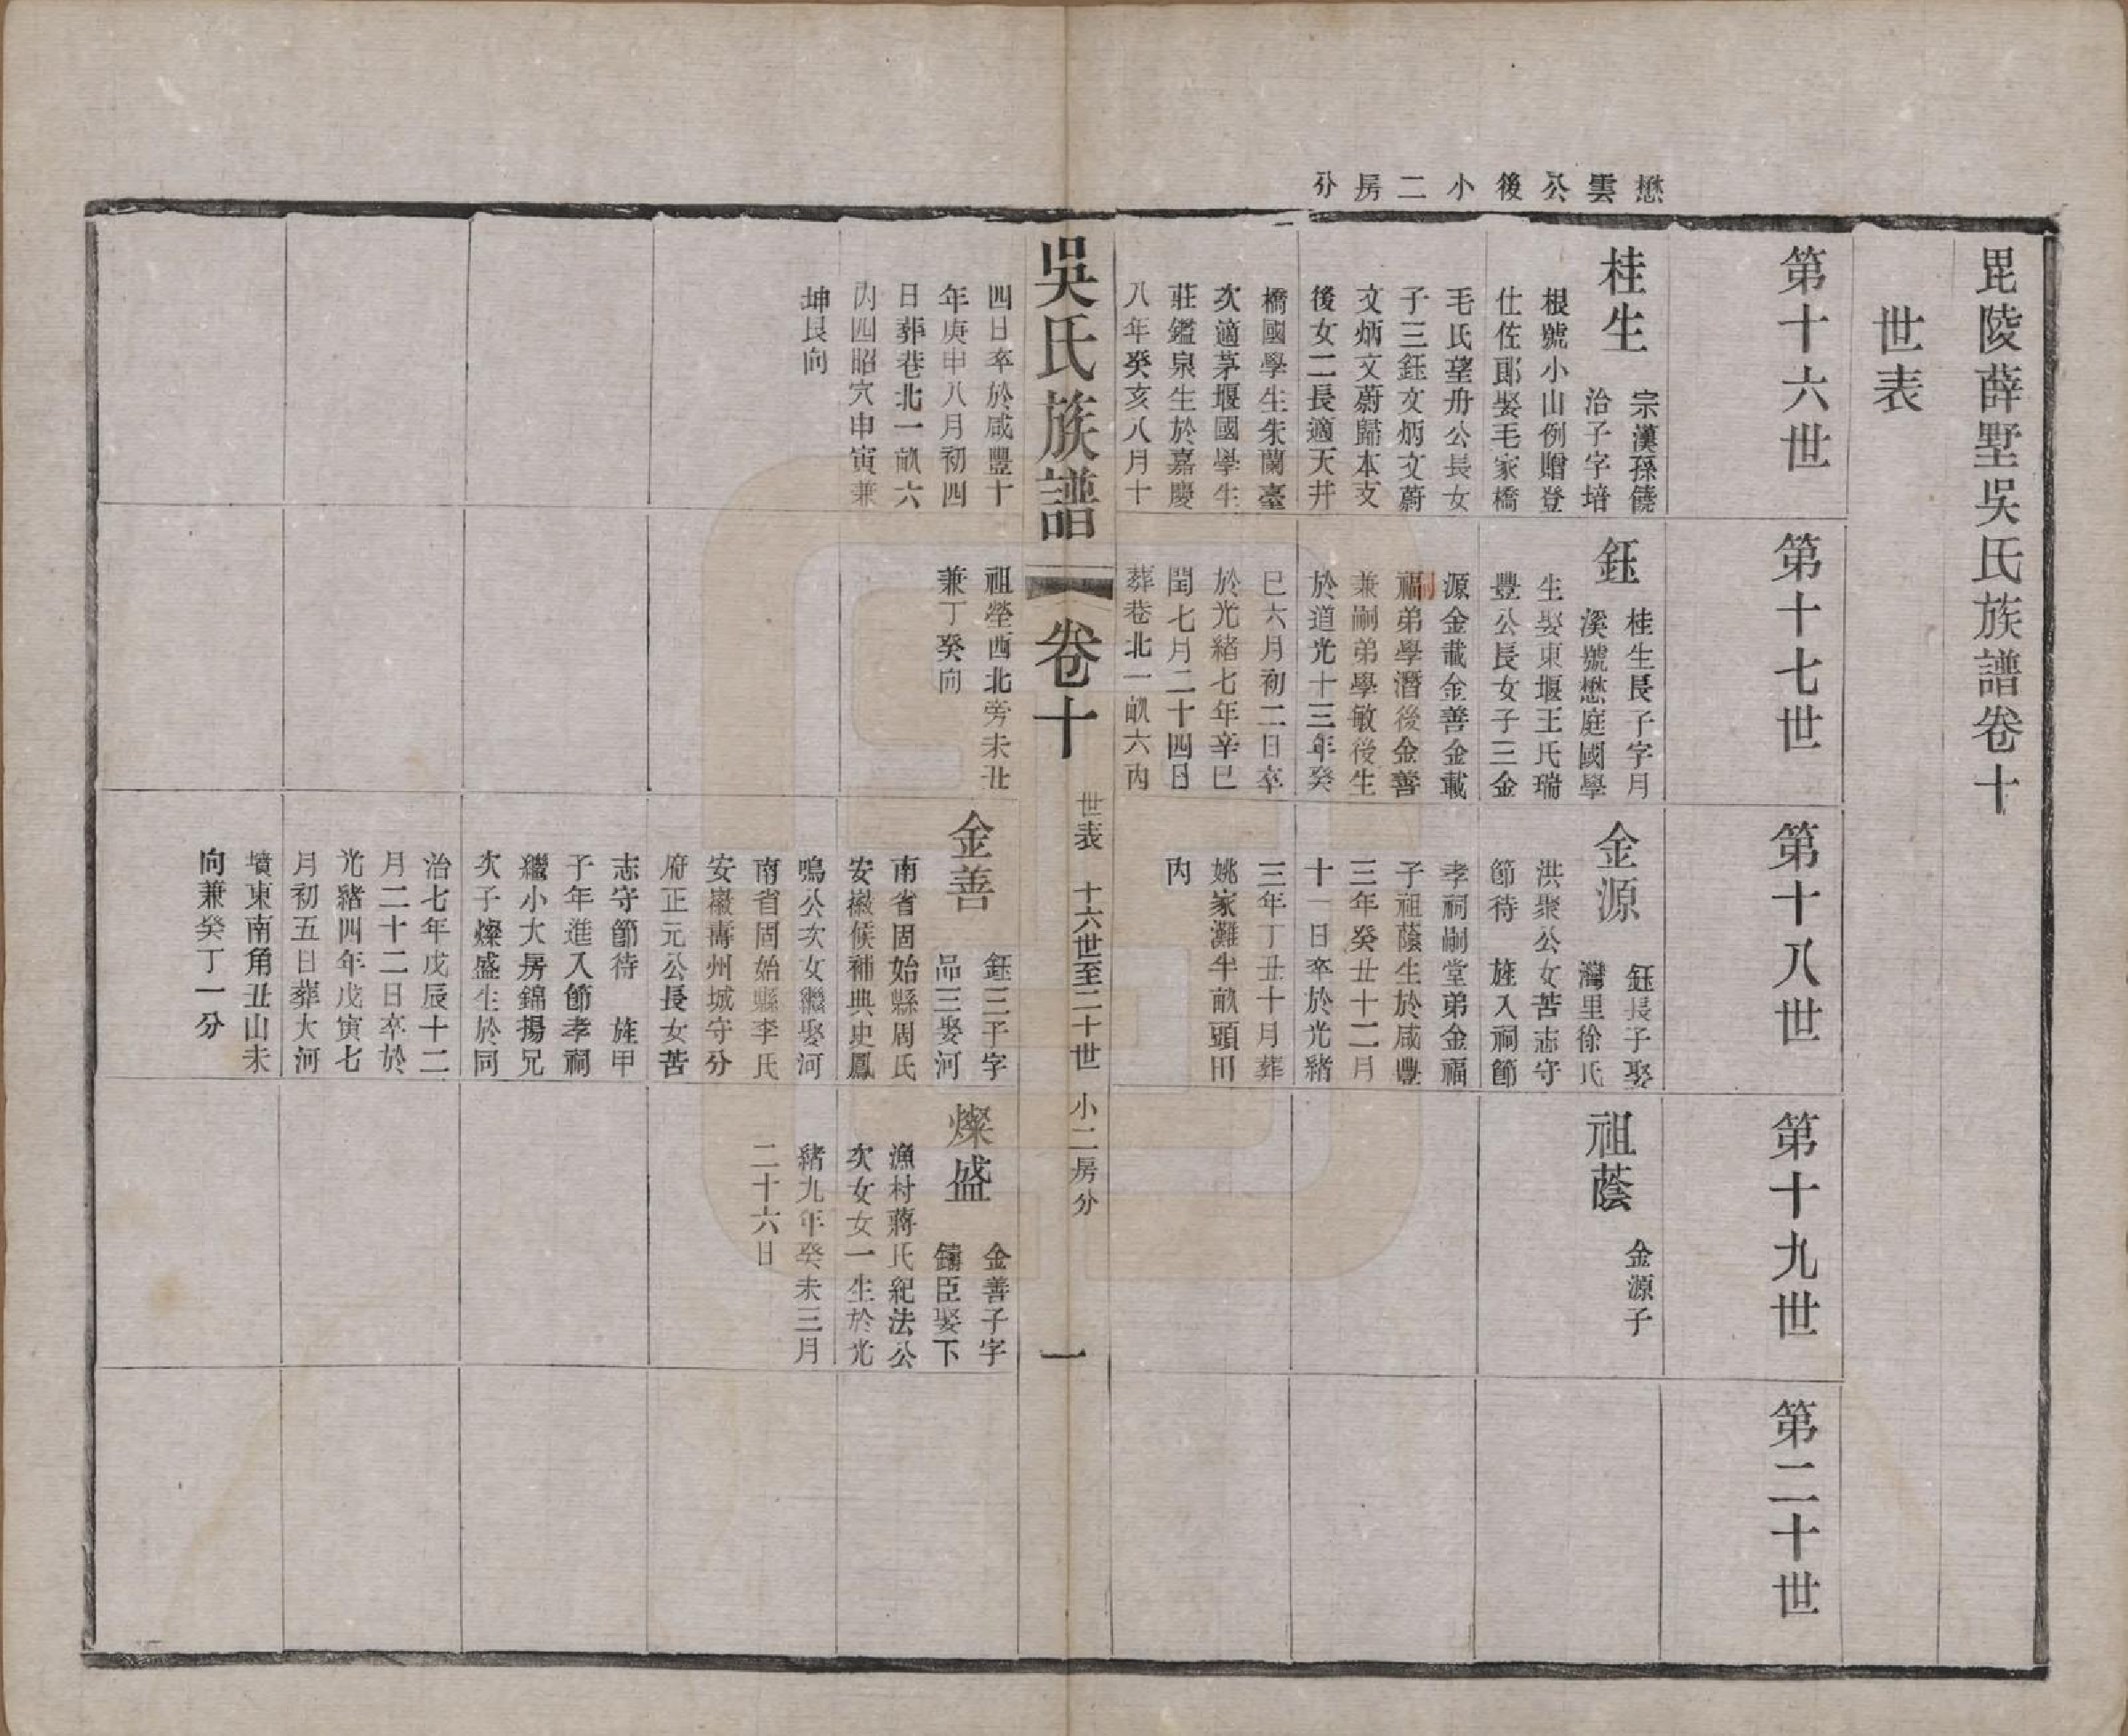 毘陵薛墅吳氏族譜卷十
世表
懋雲公後小二房分
第十六世
桂生
宗漢孫饒
治子字培
根號小山例贈登
仕佐郎娶毛家橋
毛氏望舟公長女
子三鈺文炳文蔚
文炳文蔚歸本支
後女二長適天井
橋國學生朱蘭臺
次適茅堰國學生
莊鑑泉生於嘉慶
八年癸亥八月十
四日卒於咸豐十
年庚申八月初四
日葬巷北一畝六
內四昭穴申寅兼
坤艮向
第十七世
鈺
桂生長子字月
溪號懋庭國學
生娶東堰王氏瑞
豐公長女子三金
源金載金善金載
福弟學潛後金善
兼嗣弟學敏後生
於道光十三年癸
巳六月初二日卒
於光緒七年辛巳
閏七月二十四日
葬巷北一畝六內
祖塋西北旁未丑
兼丁癸向
第十八世
金源
鈺長子娶
灣里徐氏
洪聚公女苦志守
節待 旌入祠節
孝祠嗣堂弟金福
子祖蔭生於咸豐
三年癸丑十二月
十一日卒於光緒
三年丁丑十月葬
姚家灘半畝頭田
內
金善
鈺三子字
品三娶河
南省固始縣周氏
安徽候補典史鳳
鳴公次女繼娶河
南省固始縣李氏
安徽壽州城守分
府正元公長女苦
志守節待 旌甲
子年進入節孝祠
繼小大房錦揚兄
次子燦盛生於同
治七年戊辰十二
月二十二日卒於
光緒四年戊寅七
月初五日葬大河
墳東南角丑山未
向兼癸丁一分
第十九世
祖蔭
金源子
燦盛
金善子字
鏽臣娶下
漁村蔣氏紀法公
次女女一生於光
緒九年癸未三月
二十六日
第二十世
吳氏族譜
卷十
世表 十六世至二十世 小二房分
一